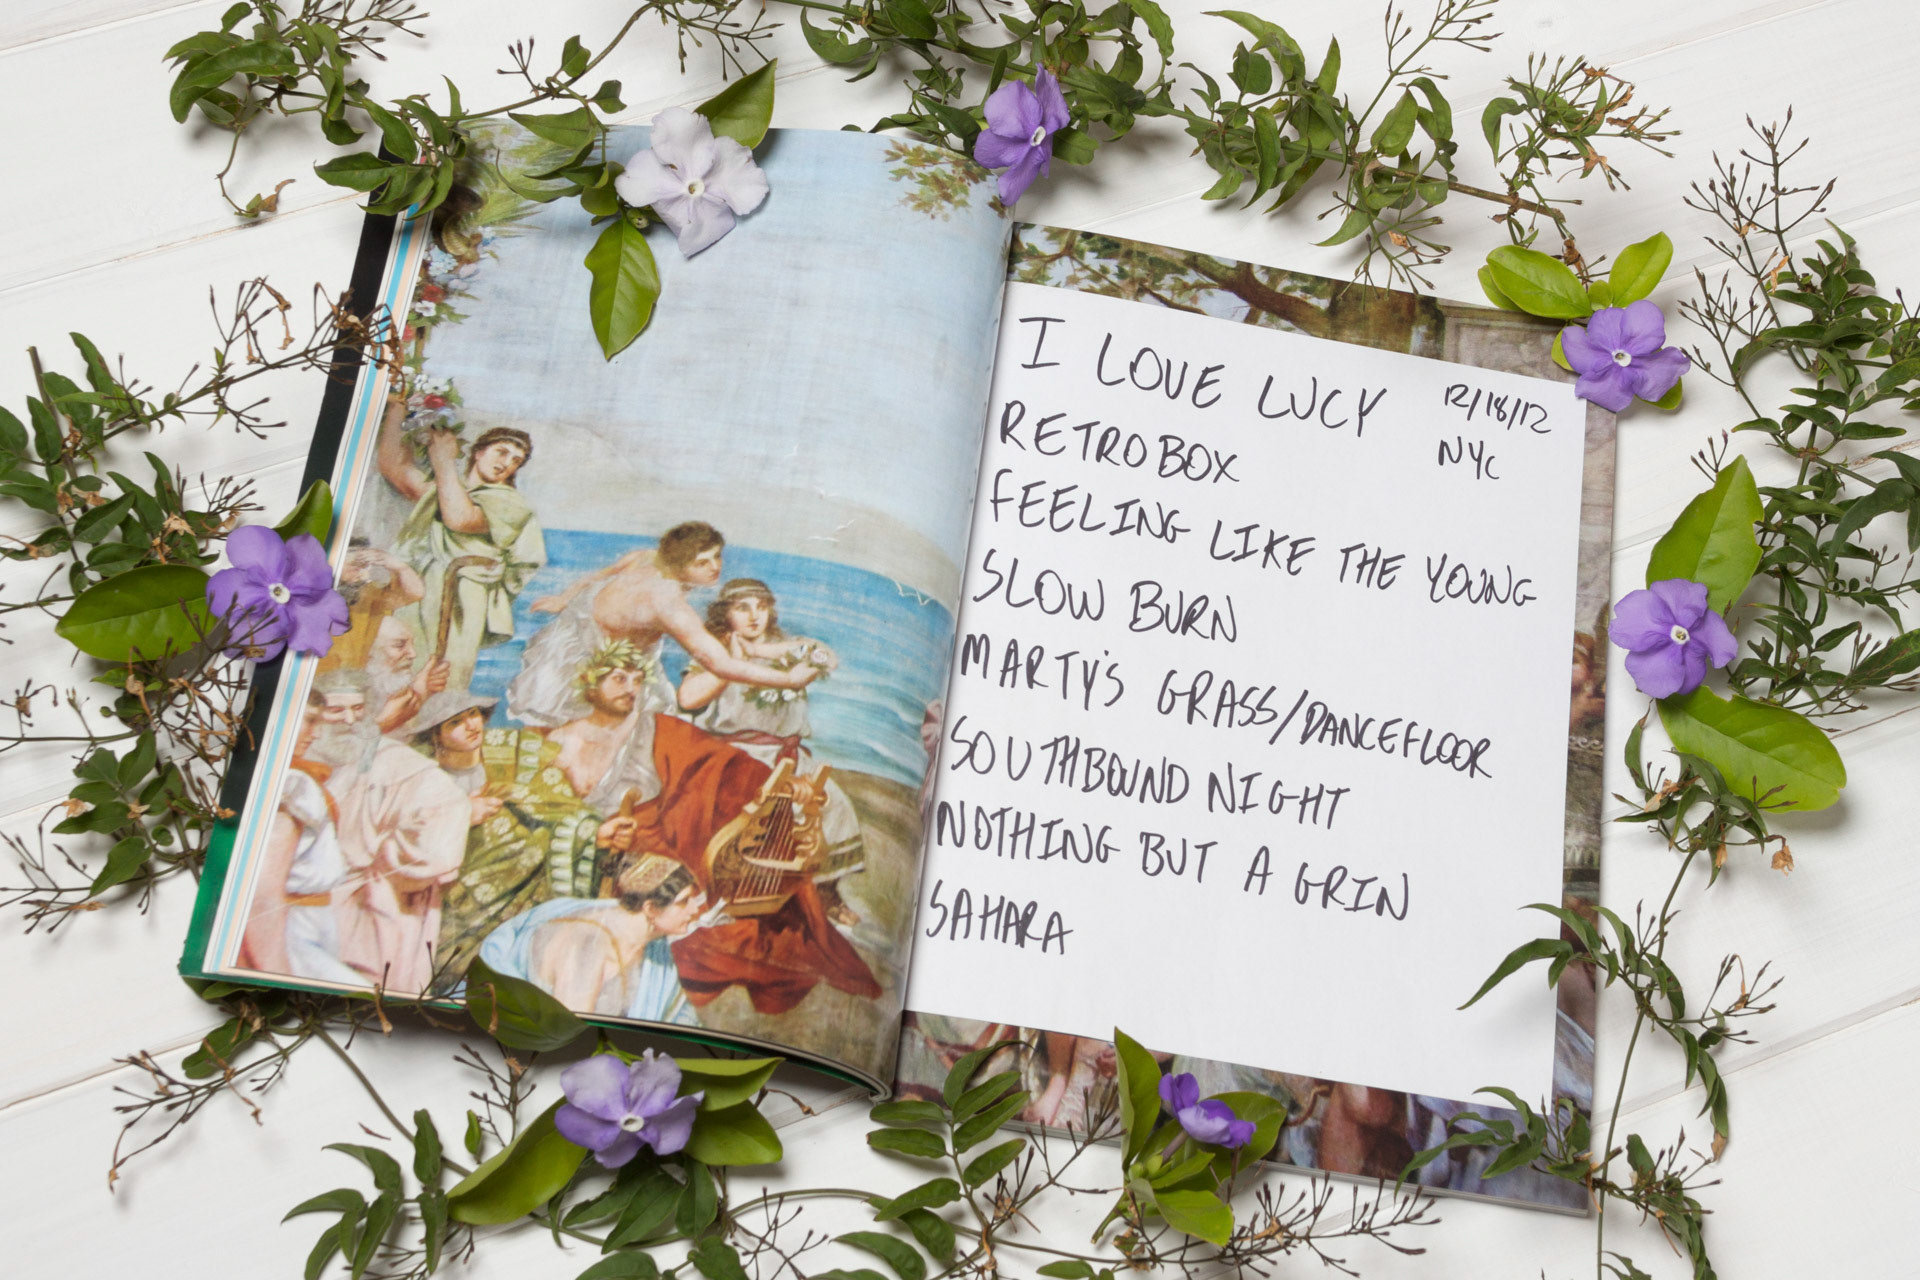 I LOVE LUCY 12/18/12
RETROBOX NYC
FEELING LIKE THE YOUNG
SLOW BURN
MARTY'S GRASS/DANCEFLOOR
SOUTHBOUND NIGHT
NOTHING BUT A GRIN
SAHARA